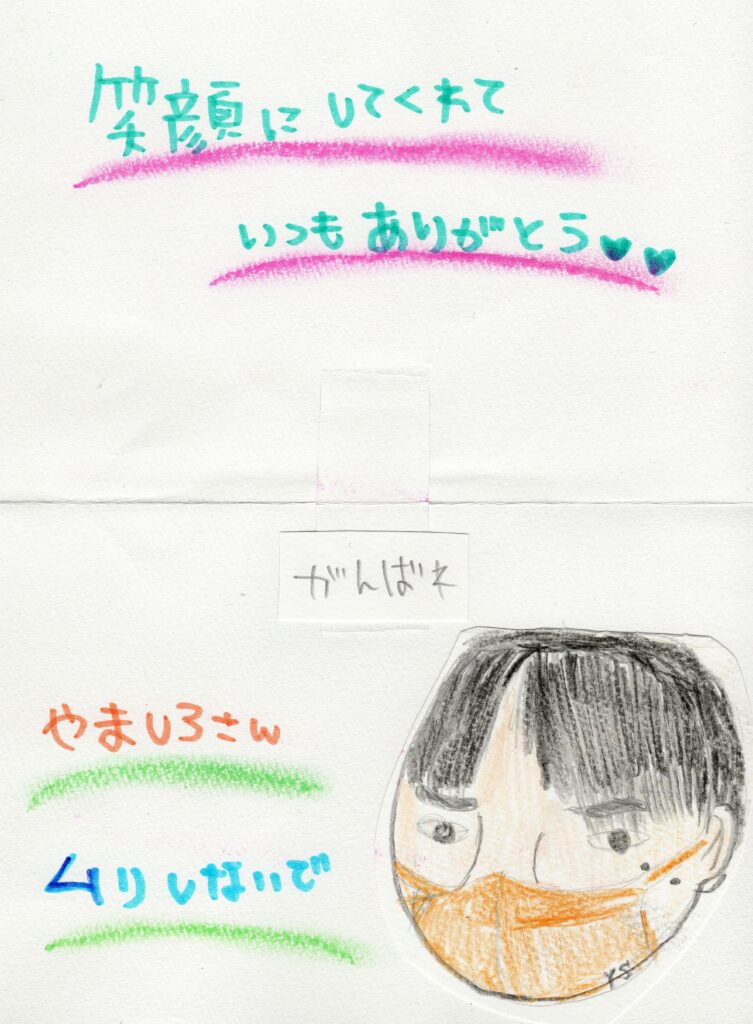 笑顔にしてくれて
いつもありがとう♥♥
がんばれ
やましろさん
ムリしないで
YS